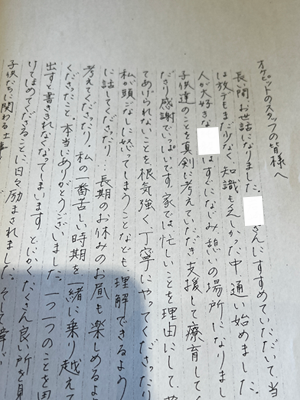 オケピットのスタッフの皆様へ
長間お世話になりました。さんにすすめていただいて当
は放デもまだ少なく知識も乏しかった中通い始めました。
人が大好きなはすぐになじみ憩いの場所になりまし
子供達のことを真剣に考えていただき支援して療育してく
ださり感謝でいっぱいです。家では忙しいことを理由にして
てあげられないことを根気強く丁寧にやってくださったり
私が頭ごなしに怒ってしまうことなども、理解できるよう
に話してくださったり…長期のお休みのお昼も楽めるよ
考えてくださったり、私の一番苦しい時期を緒に乗り越えて
くださったこと、本当にありがとうございました。一つ一つのことを思
出すと書ききれなくなってしまいます。とにかくたくさん良い所を見
けてほめてくださることに日々励まされました。そして
子供たちに関わる